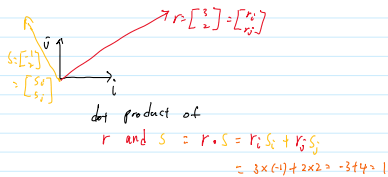 r=[3 2]=[ri rj]
ĵ
s=[-1 2]
=[si sj]
i
dot product of
r and s = r•s = risi + rjsj
= 3×(-1)+2×2 = -3+4 = 1